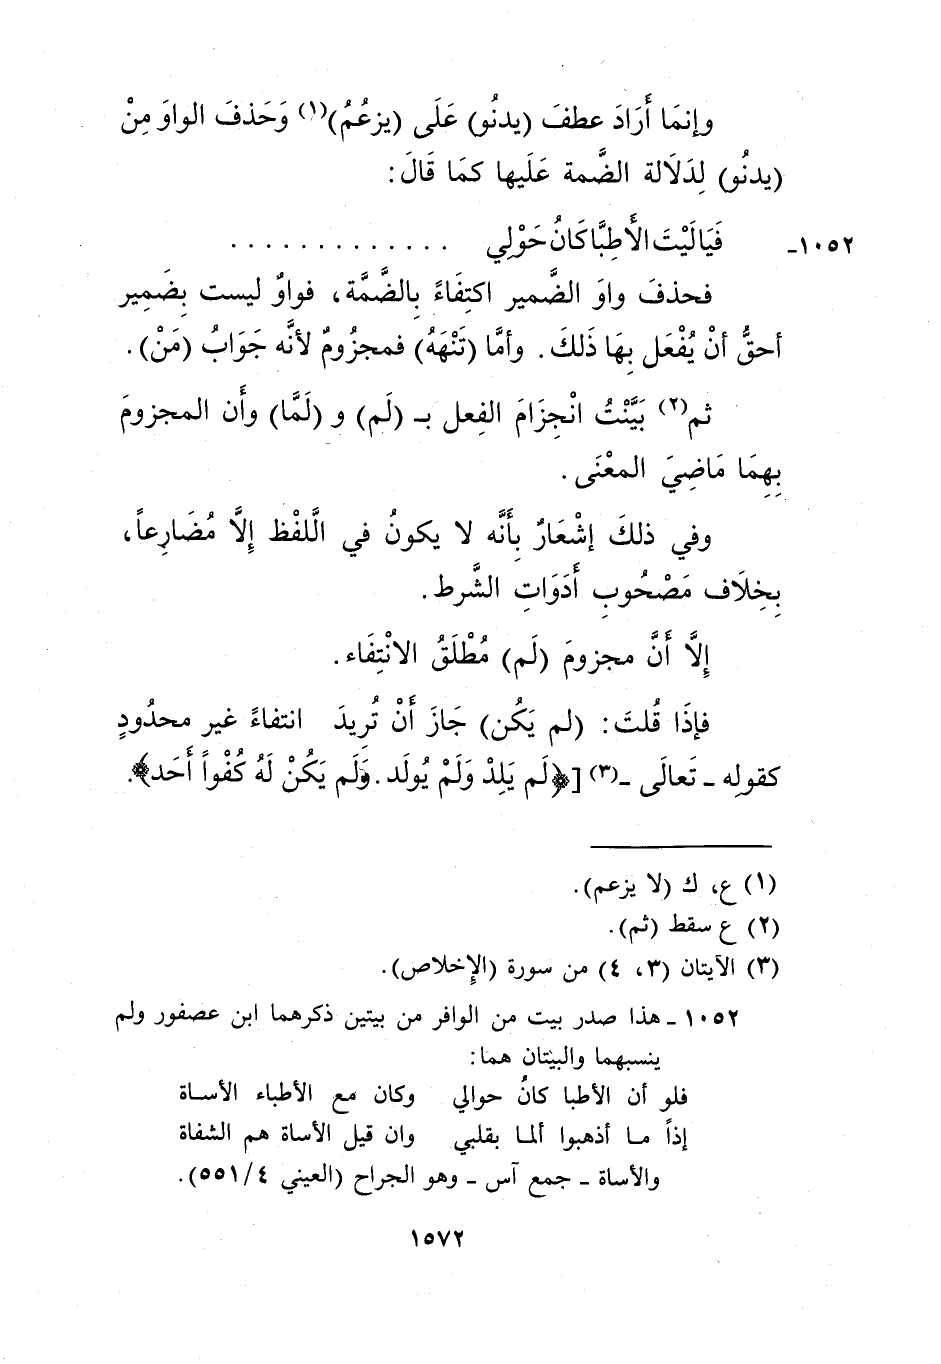 وإنمَا أَرَادَ عطفَ (يدنُو) عَلَى (يزعُمُ)(١) وَحَذفَ الواوَ مِنْ
(يدنُو) لِدَلَالة الضَّمة عَلَيها كمَا قَالَ:
١٠٥٢- فَيَالَيْتَ الأَطِبَّا كَانُ حَوْلِي . . . . . . . . . . . . .
فحذفَ واوَ الضَّمير اكتِفَاءً بِالضَّمَّة، فواوٌ ليست بِضَمِير
أحقُّ أنْ يُفْعَل بِهَا ذَلكَ. وأمَّا (تَنْهَهُ) فمجزُومٌ لأنَّه جَوَابُ (مَنْ).
ثم(٢) بَيَّنْتُ انْجِزَامَ الفِعل بـ (لَم) و (لَمَّا) وأَن المجزومَ
بِهِمَا مَاضِيَ المعْنَى.
وفي ذلكَ إشْعَارٌ بِأَنَّه لا يكونُ في الَّلفْظ إِلَّا مُضَارِعاً،
بِخِلَاف مَصْحُوبِ أَدَوَاتِ الشَّرط.
إِلَّا أَنَّ مجزومَ (لَم) مُطْلَقُ الانْتِفَاء.
فإِذَا قُلتَ: (لم يَكُن) جَازَ أَنْ تُرِيدَ انتفاءً غير محدُودٍ
كقولِه - تَعالَى -(٣) [﴿لَم يَلِدْ وَلَمْ يُولَد. وَلَم يَكُنْ لَهُ كُفْواً أَحَد﴾.
(١) ع، ك (لا يزعم).
(٢) ع سقط (ثم).
(٣) الآيتان (٣، ٤) من سورة (الإخلاص).
١٠٥٢ - هذا صدر بيت من الوافر من بيتين ذكرهما ابن عصفور ولم
ينسبهما والبيتان هما:
فلو أن الأطبا كانُ حوالي وكان مع الأطباء الأساة
إذاً ما أذهبوا ألما بقلبي وان قيل الأساة هم الشفاة
والأساة - جمع آس - وهو الجراح (العيني ٤/٥٥١).
١٥٧٢